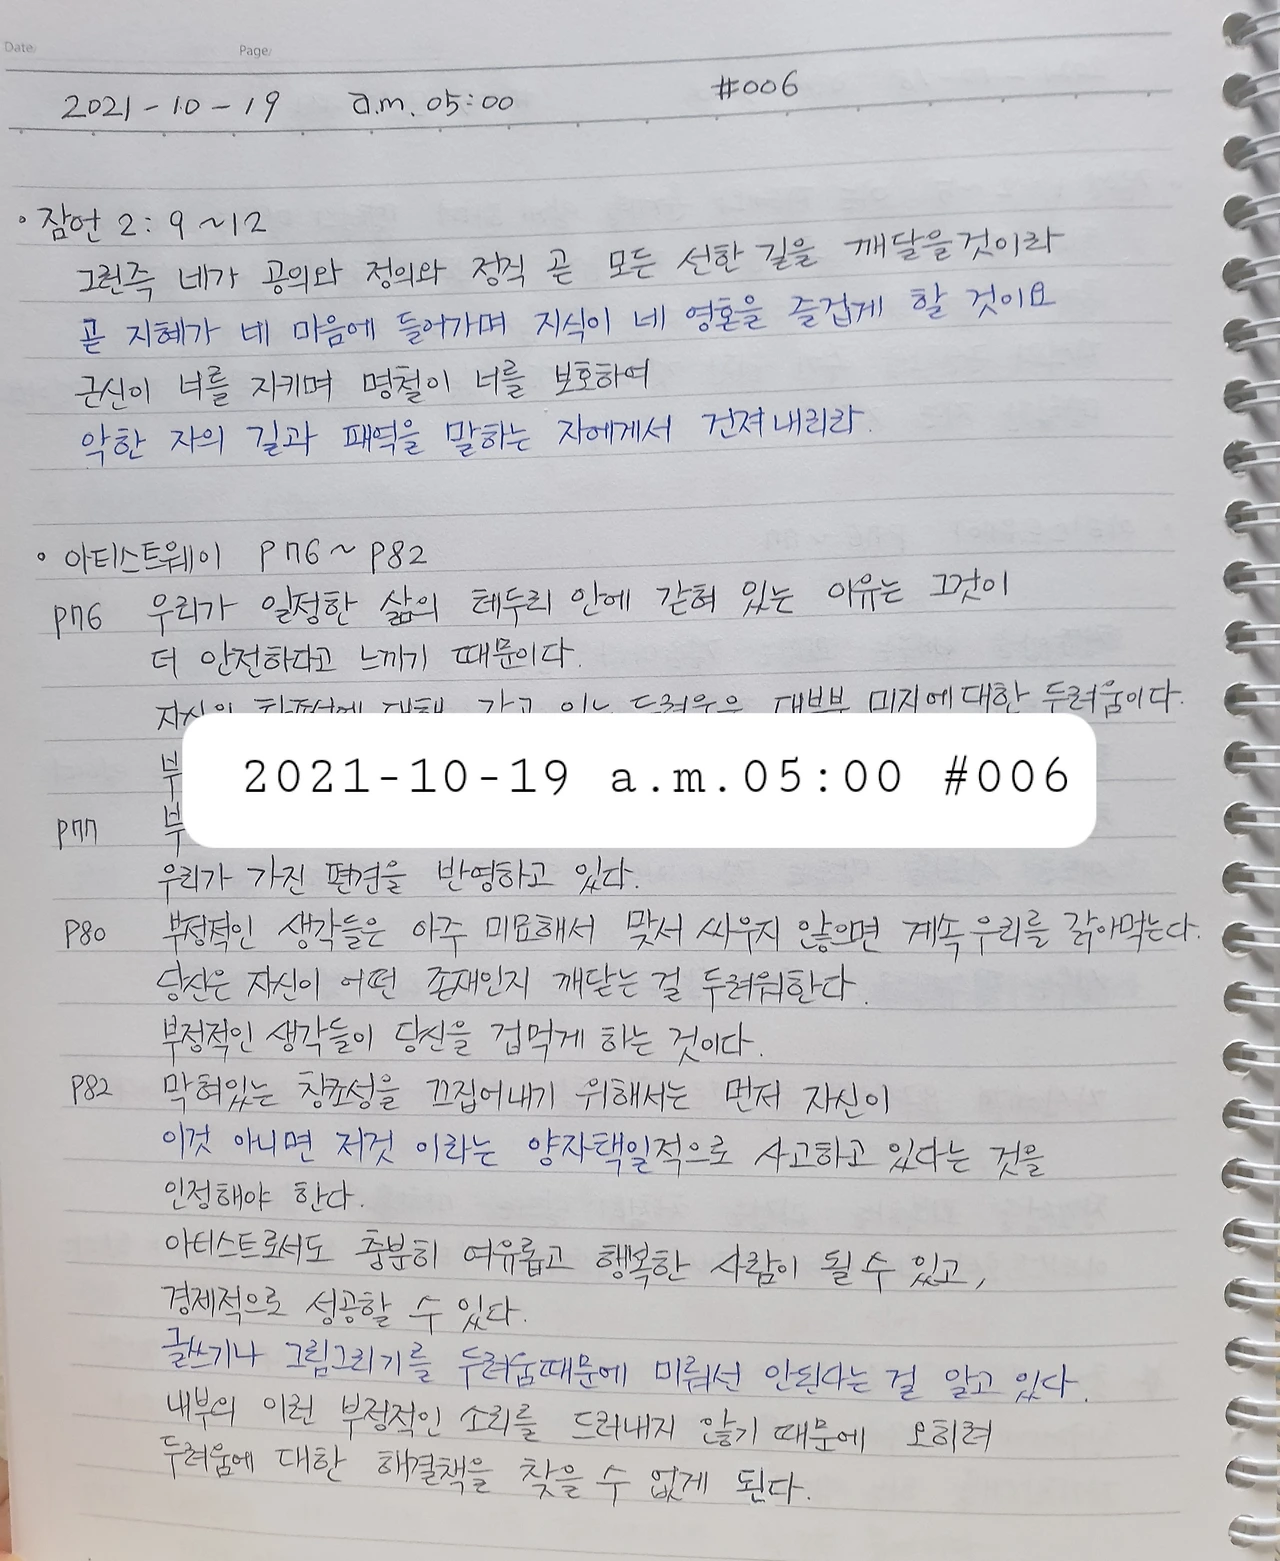 Date/ Page/
2021-10-19 a.m. 05:00 #006
• 잠언 2: 9~12
그런즉 네가 공의와 정의와 정직 곧 모든 선한 길을 깨달을것이라
곧 지혜가 네 마음에 들어가며 지식이 네 영혼을 즐겁게 할 것이요
근신이 너를 지키며 명철이 너를 보호하여
악한 자의 길과 패역을 말하는 자에게서 건져내리라.
• 아티스트웨이 P76~P82
P76 우리가 일정한 삶의 테두리 안에 갇혀 있는 이유는 그것이
더 안전하다고 느끼기 때문이다.
자신의 창조성에 대해 갖고 있는 두려움은 대부분 미지에대한 두려움이다.
부
2021-10-19 a.m.05:00 #006
P77 부
우리가 가진 편견을 반영하고 있다.
P80 부정적인 생각들은 아주 미묘해서 맞서 싸우지 않으면 계속우리를 갉아먹는다.
당신은 자신이 어떤 존재인지 깨닫는걸 두려워한다.
부정적인 생각들이 당신을 겁먹게 하는 것이다.
P82 막혀있는 창조성을 끄집어내기 위해서는 먼저 자신이
이것 아니면 저것 이라는 양자택일적으로 사고하고 있다는 것을
인정해야 한다.
아티스트로서도 충분히 여유롭고 행복한 사람이 될 수 있고,
경제적으로 성공할 수 있다.
글쓰기나 그림그리기를 두려움때문에 미뤄선 안된다는 걸 알고 있다.
내부의 이런 부정적인 소리를 드러내지 않기 때문에 오히려
두려움에 대한 해결책을 찾을 수 없게 된다.